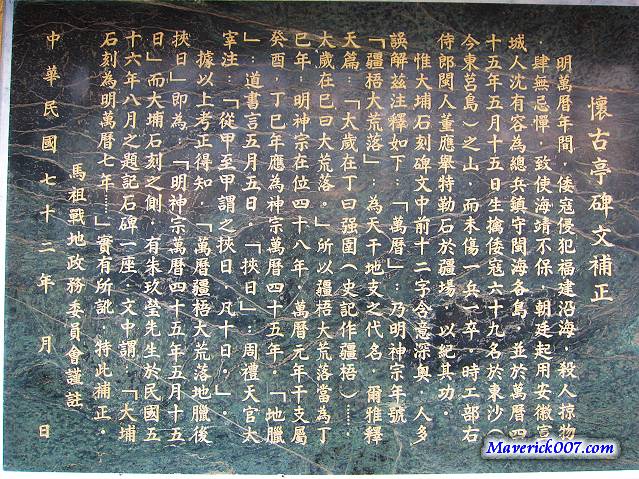 懷古亭碑文補正
明萬曆年間,倭寇侵犯福建沿海,殺人掠物
,肆無忌憚,致使海靖不保,朝廷起用安徽宣
城人沈有容為總兵鎮守閩海各島,並於萬曆四
十五年五月十五日生擒倭寇六十九名於東沙(
今東莒島)之山,而未傷一兵一卒,時工部右
侍郎閩人董應舉特勒石於疆場,以紀其功。
惟大埔石刻碑文中前十二字含意深奧,人多
誤解茲注釋如下:「萬曆」:乃明神宗年號
「疆梧大荒落」:為天干地支之代名,爾雅釋
天篇,「大歲在丁曰强圉(史記作疆梧)……
大歲在巳曰大荒落。」所以疆梧大荒落當為丁
巳年,明神宗在位四十八年,萬曆元年干支屬
癸酉,丁巳年應為神宗萬曆四十五年,「地臘
」:道書言五月五日,「挾日」:周禮天官太
宰注:「從甲至甲謂之挾日,凡十日。」。
據以上考正得知,「萬曆疆梧大荒落地臘後
挾日」即為,「明神宗萬曆四十五年五月十五
日」而大埔石刻之側,有朱玖瑩先生於民國五
十六年八月之題記石碑一座,文中謂,「大埔
石刻為明萬曆七年……」實有所訛,特此補正。
馬祖戰地政務委員會謹註
中華民國七十二年 月 日
Maverick007.com